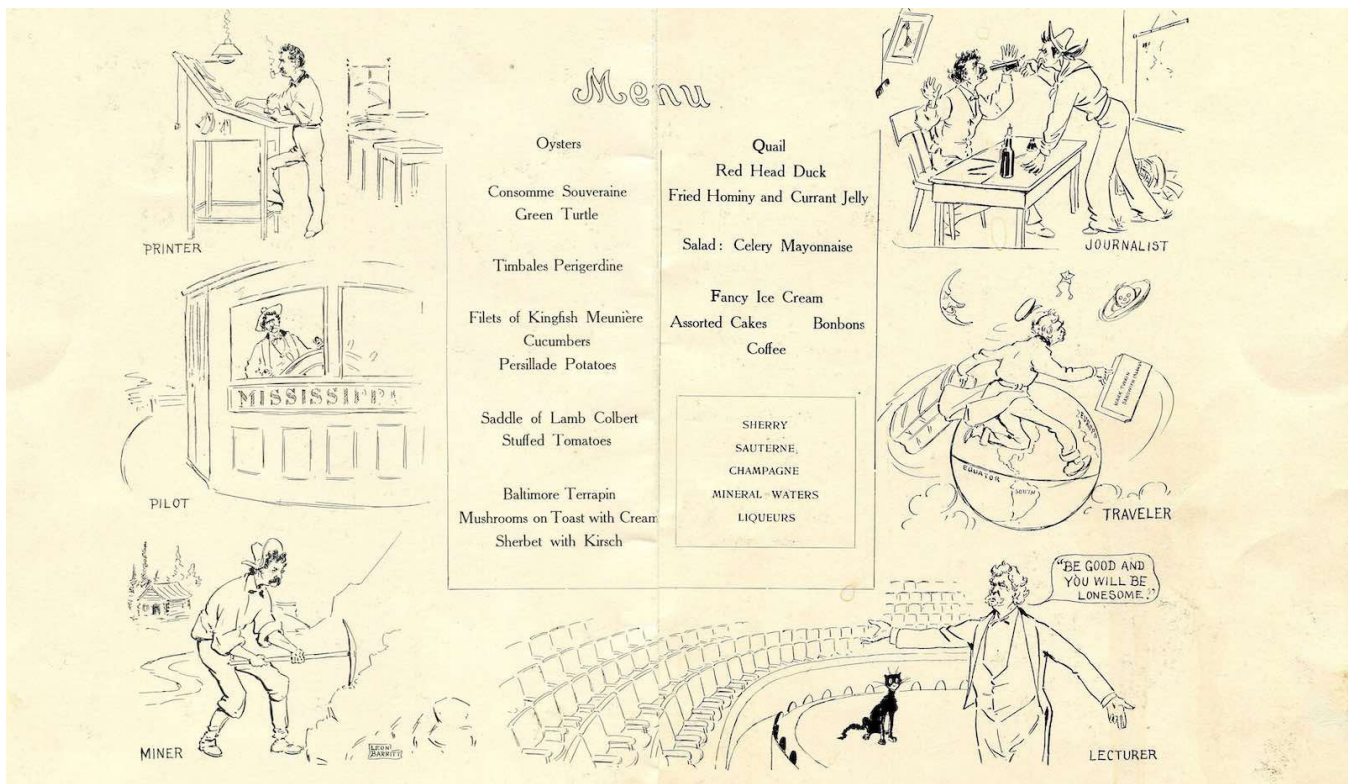 Menu
Oysters
Consomme Souveraine
Green Turtle
Timbales Perigerdine
Filets of Kingfish Meunière
Cucumbers
Persillade Potatoes
Saddle of Lamb Colbert
Stuffed Tomatoes
Baltimore Terrapin
Mushrooms on Toast with Cream
Sherbet with Kirsch
Quail
Red Head Duck
Fried Hominy and Currant Jelly
Salad: Celery Mayonnaise
Fancy Ice Cream
Assorted Cakes Bonbons
Coffee
SHERRY
SAUTERNE
CHAMPAGNE
MINERAL WATERS
LIQUEURS
PRINTER
MISSISSIPPI
PILOT
MINER
LEON
BARRITT
JOURNALIST
MARK TWAIN
EQUATOR
SOUTH
TRAVELER
"BE GOOD AND
YOU WILL BE
LONESOME."
LECTURER